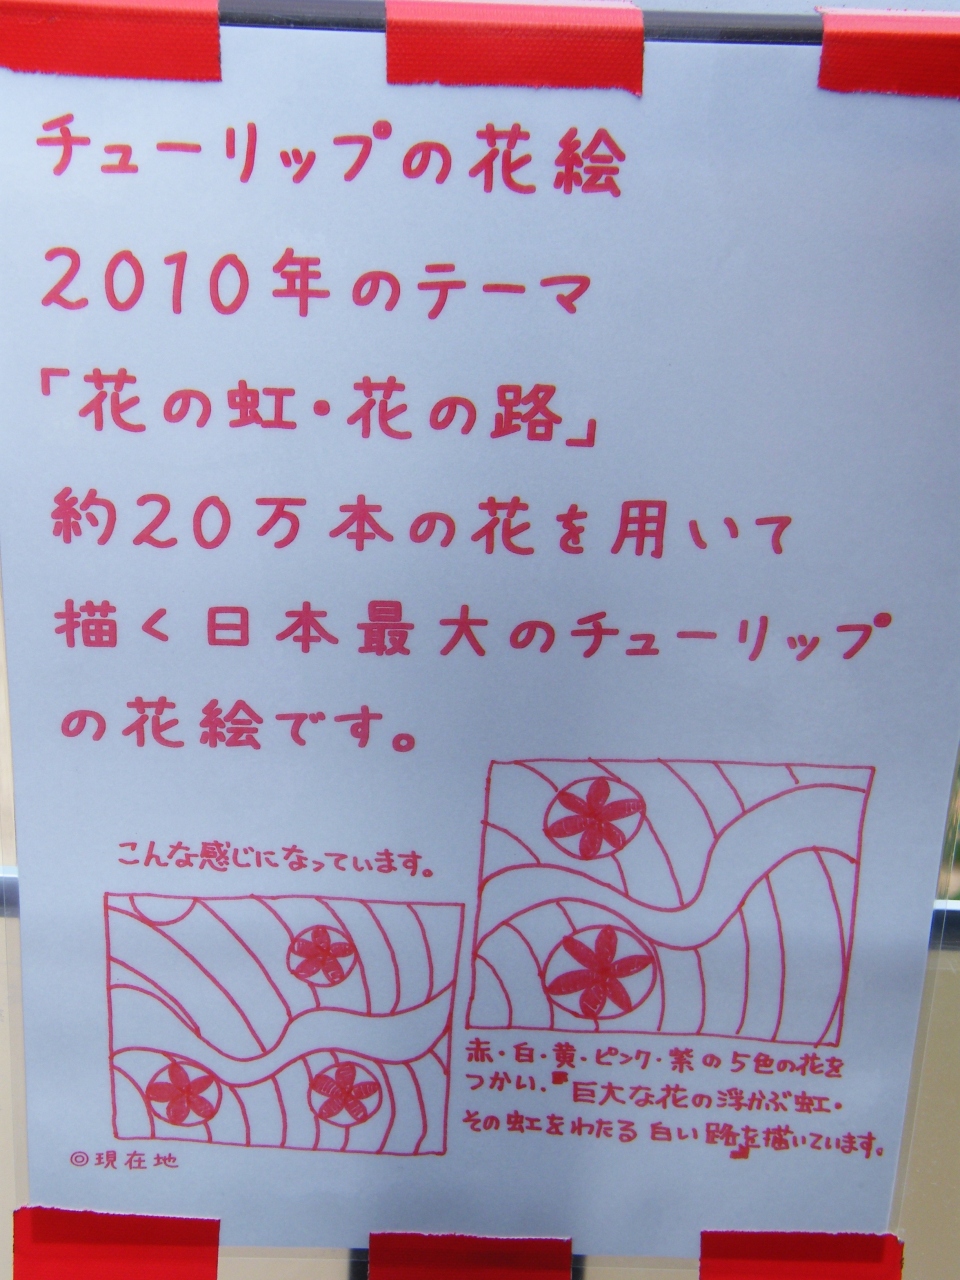 チューリップの花絵
2010年のテーマ
「花の虹・花の路」
約20万本の花を用いて
描く日本最大のチューリップ
の花絵です。
こんな感じになっています。
◎現在地
赤・白・黄・ピンク・紫の5色の花を
つかい.『巨大な花の浮かぶ虹・
その虹をわたる白い路』を描いています。